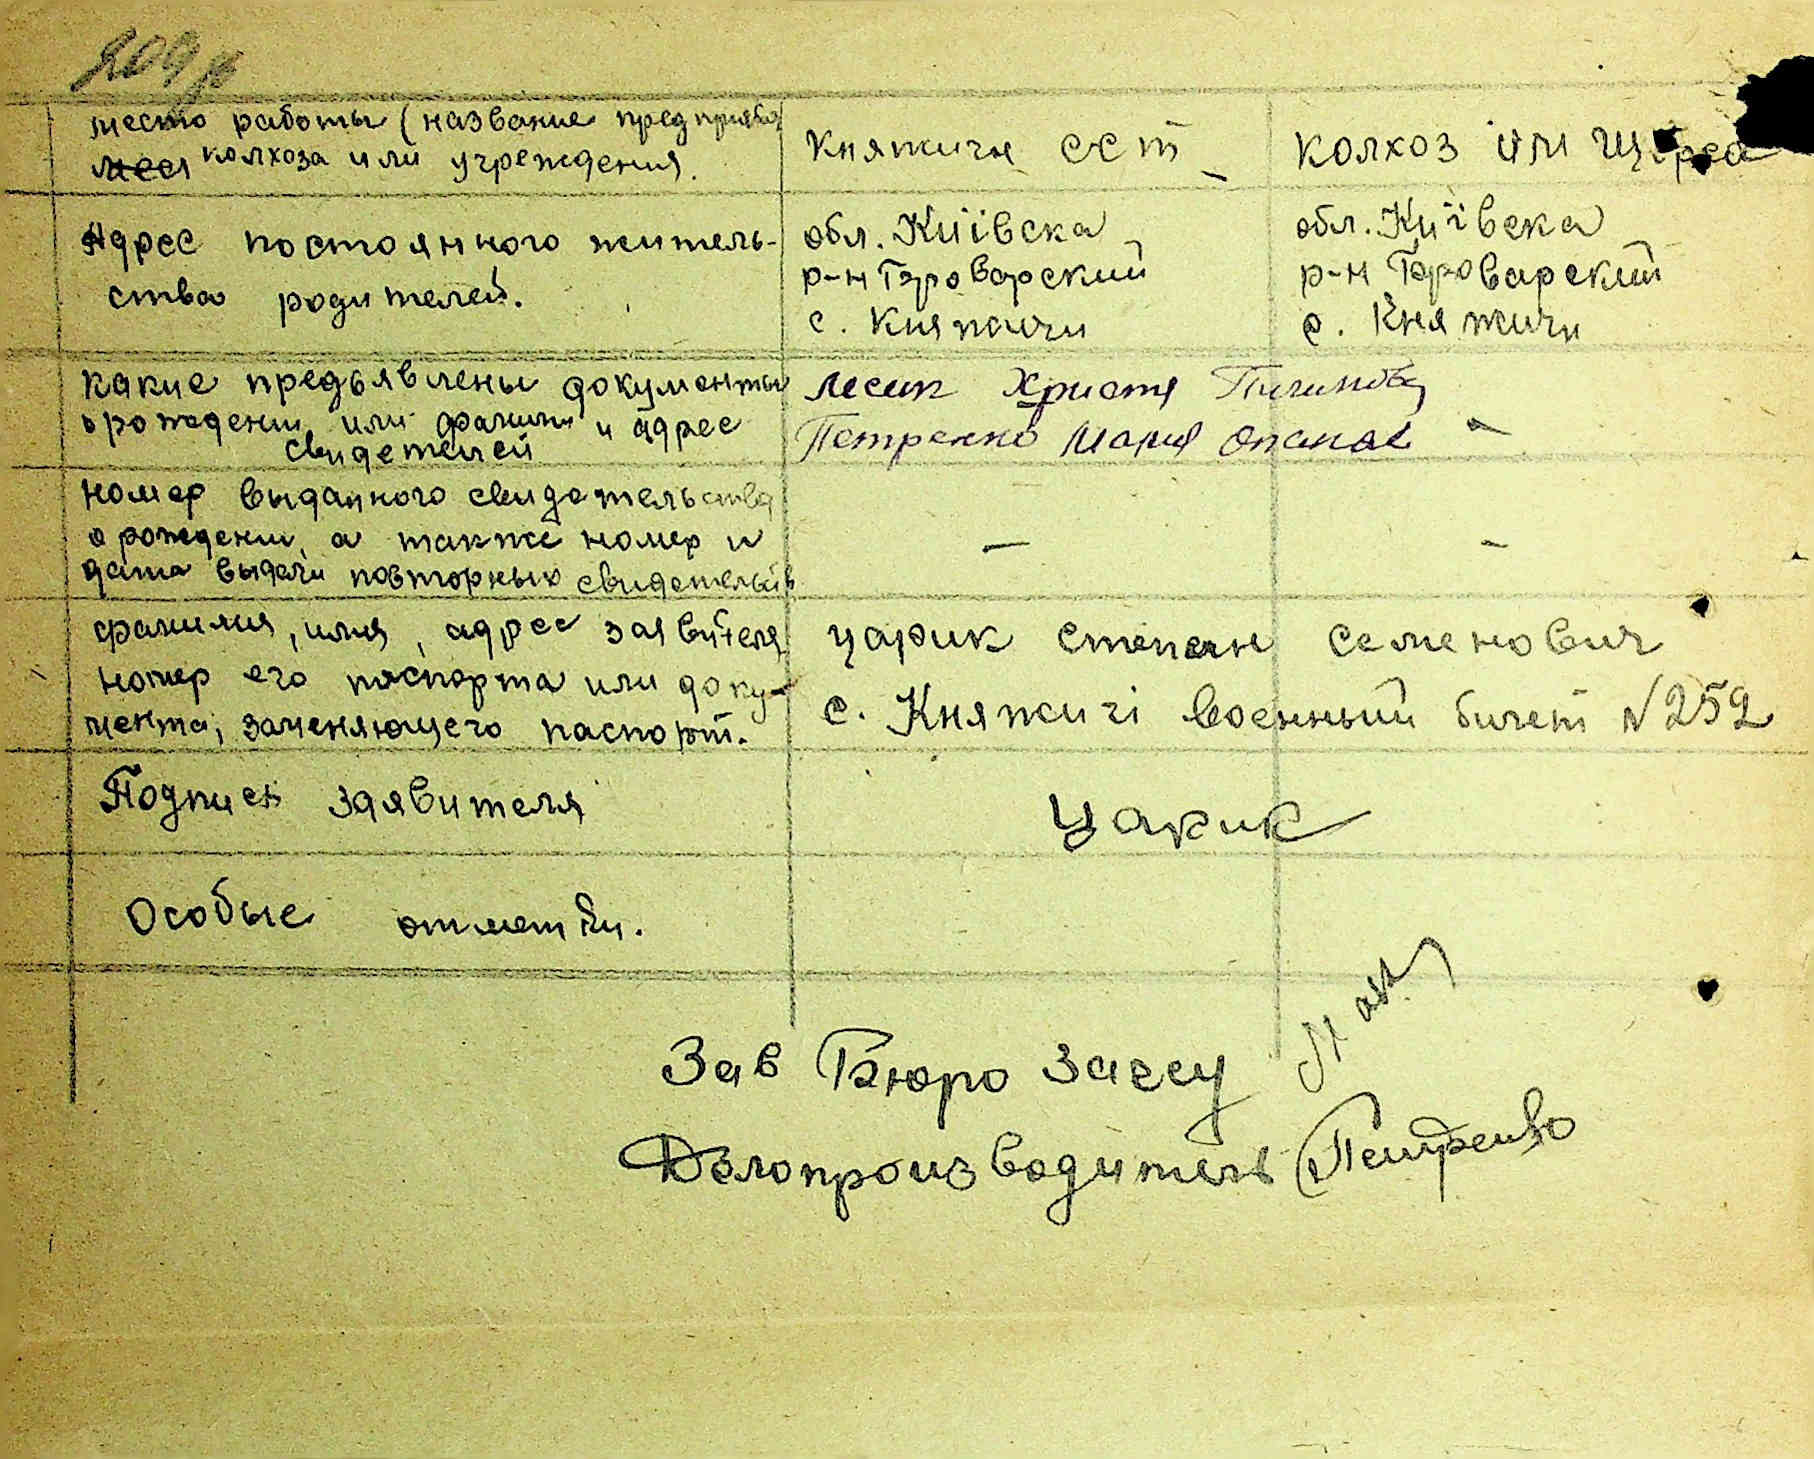 209
место работы (название предприятия
колхоза или учреждения.
Княжичи сст
колхоз им Щорса
Адрес постоянного житель-
ства родителей.
обл. Київска
р-н Броварский
с. Княжичи
обл. Київска
р-н Броварский
с. Княжичи
какие предъявлены документы
о рождении или фамилии и адрес
свидетелей
Лесик Христя
Петренко Мария Опанас –
номер выданного свидетельства
о рождении, а также номер и
дата выдачи повторных свидетельств
– –
фамилия, имя, адрес заявителя
номер его паспорта или доку-
мента, заменяющего паспорт.
Царик степан семенович
с. Княжичі военный билет №252
Подпись заявителя
Царик
Особые отметки.
Зав Бюро Загсу
Делопроизводитель Петренко